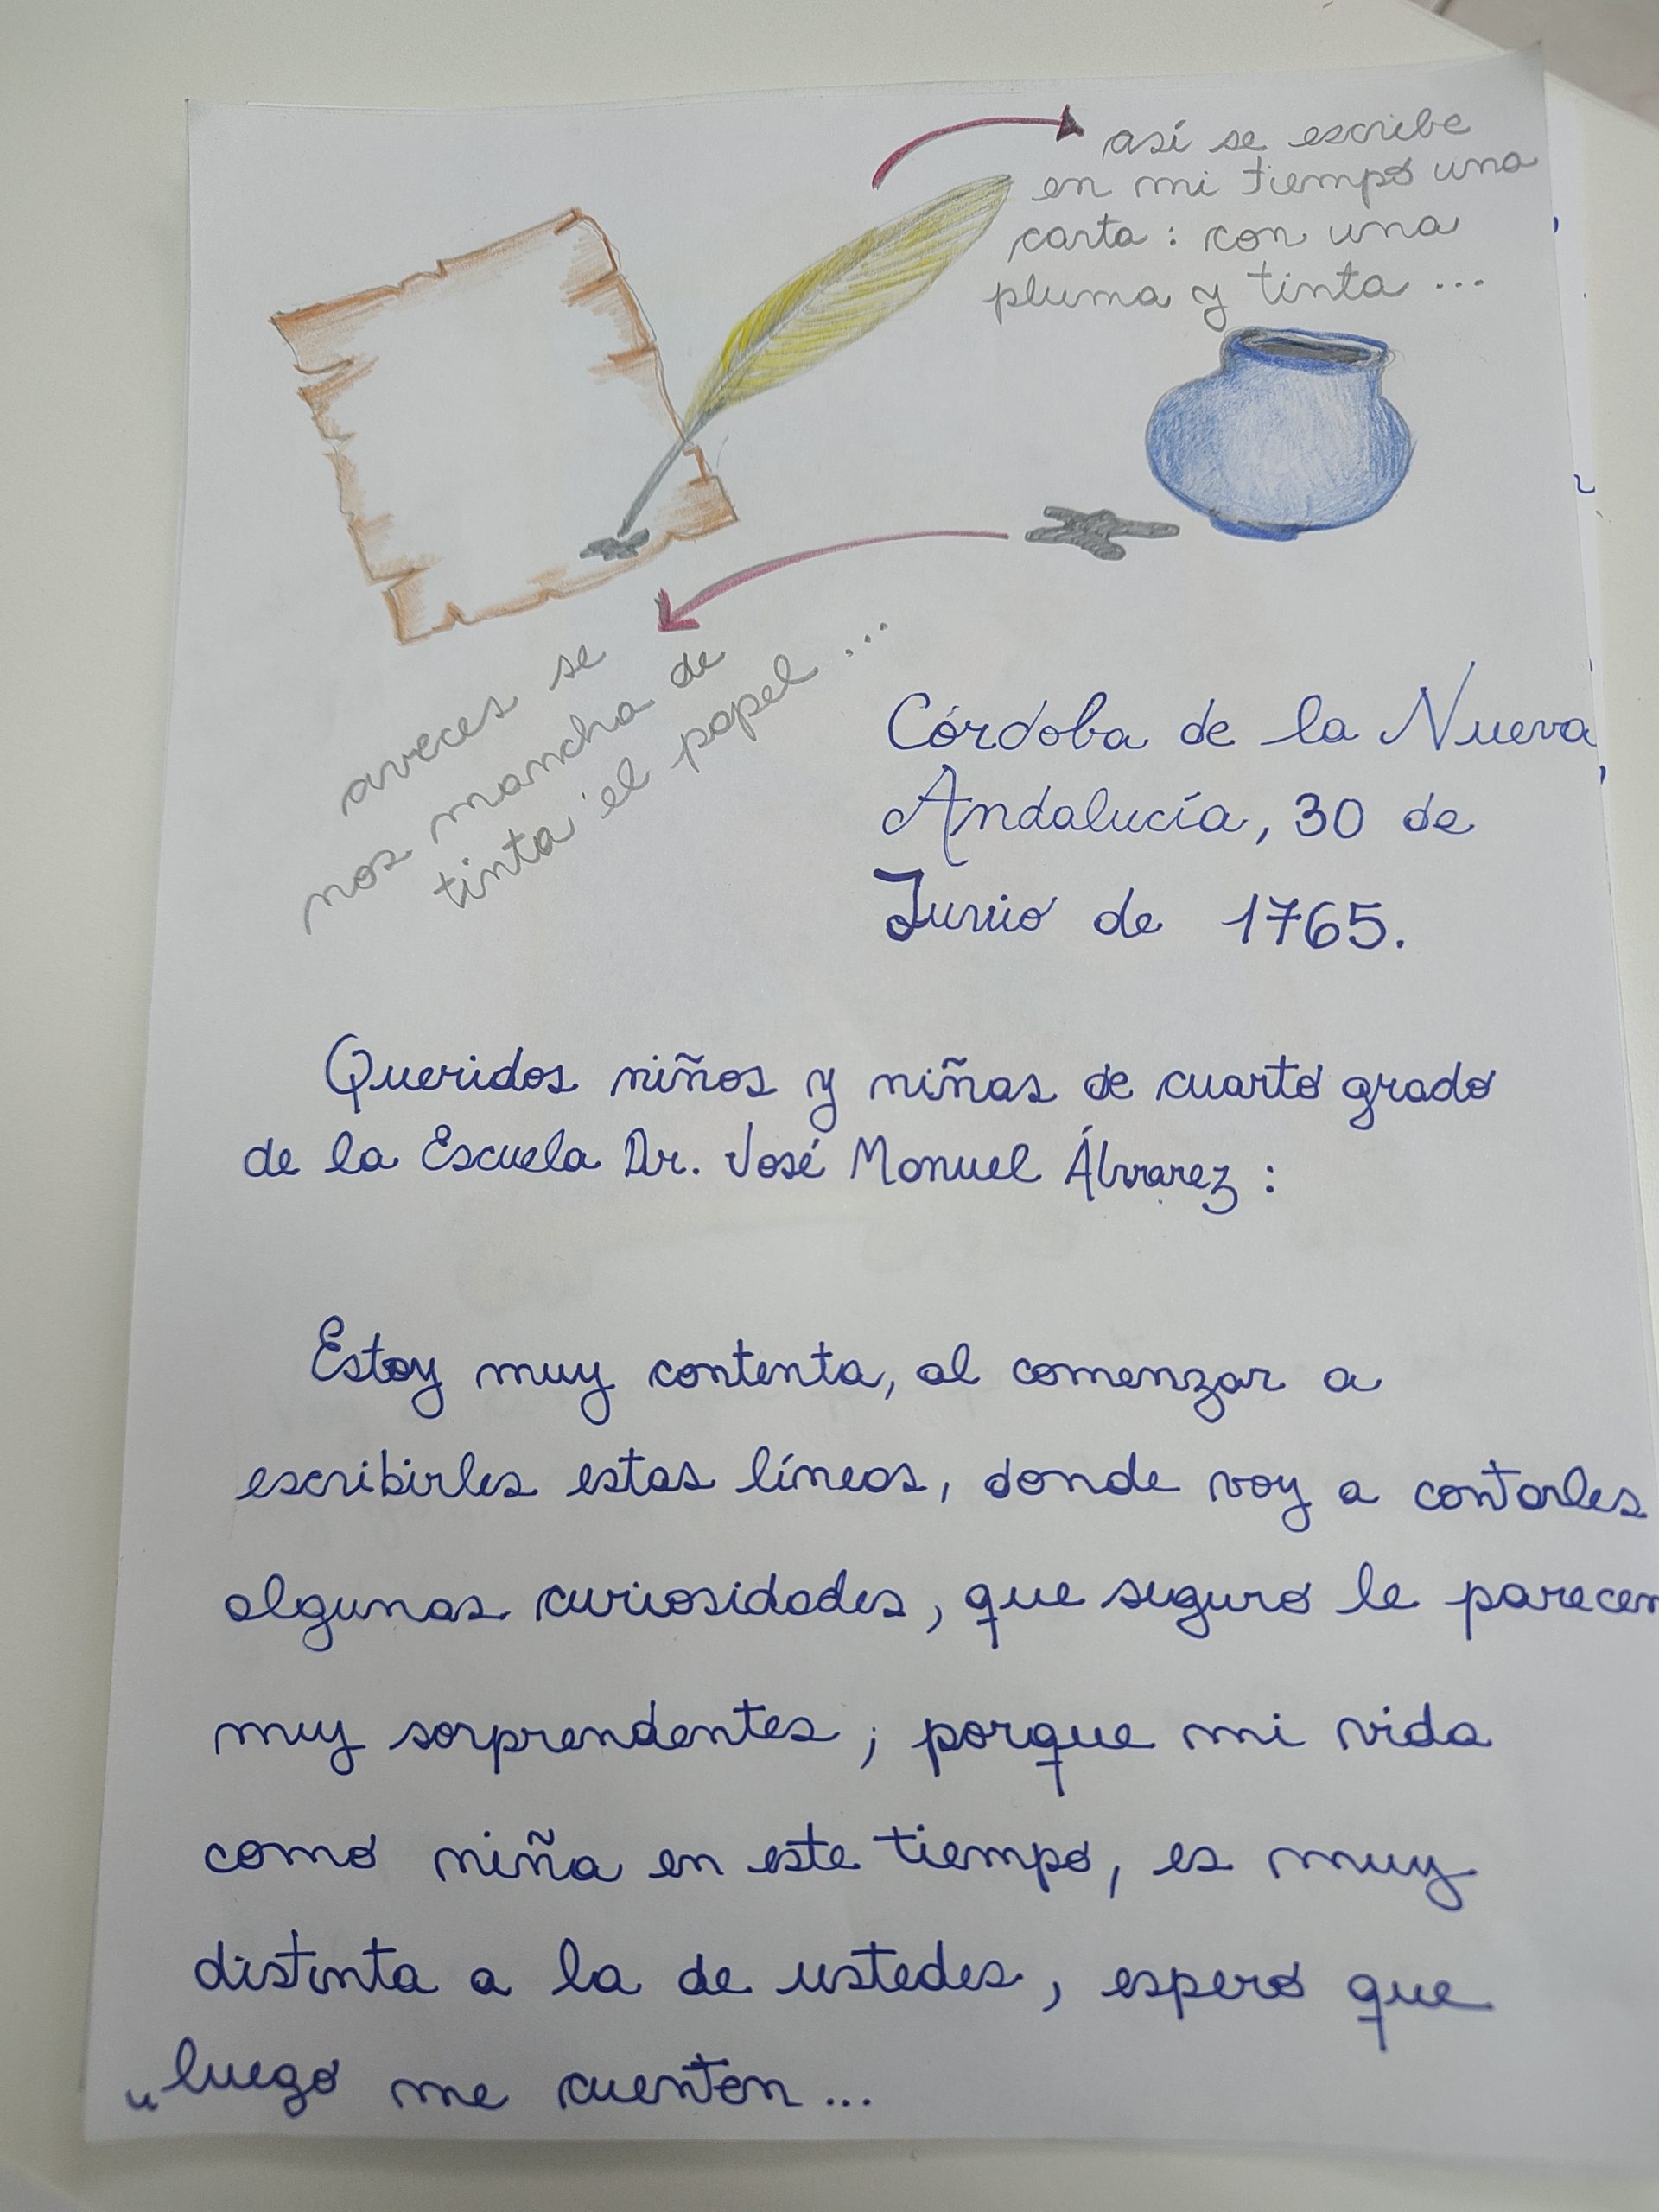 así se escribe
en mi tiempo una
carta: con una
pluma y tinta ...
aveces se
nos mancha de
tinta el papel ...
Córdoba de la Nueva
Andalucía, 30 de
Junio de 1765.
Queridos niños y niñas de cuarto grado
de la Escuela Dr. José Manuel Álvarez:
Estoy muy contenta, al comenzar a
escribirles estas líneas, donde voy a contarles
algunas curiosidades, que seguro le parecen
muy sorprendentes; porque mi vida
como niña en este tiempo, es muy
distinta a la de ustedes, espero que
luego me cuenten ...